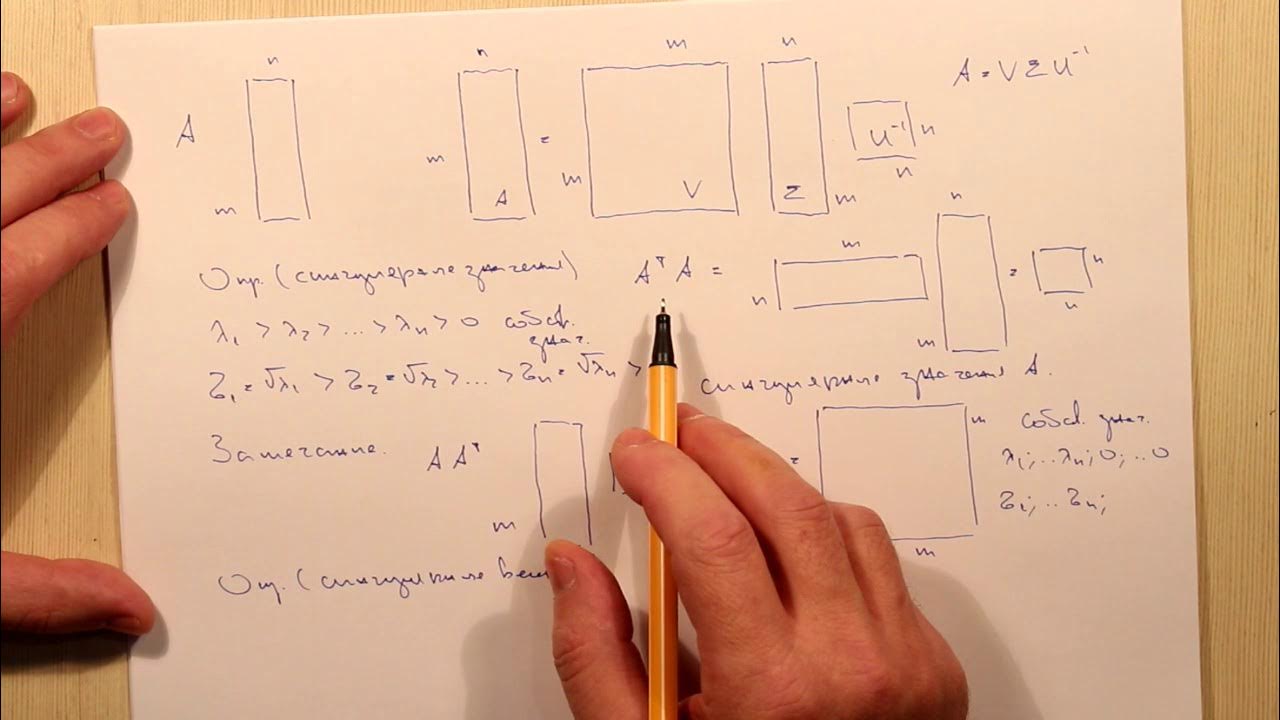 n n m n A = V Σ U⁻¹
A m = m U⁻¹ n
m A V Σ m n
Опр. (сингулярные значения) AᵀA = n m n m = n n
λ₁ > λ₂ > ... > λₙ > 0 собств. знач.
σ₁ = √λ₁ > σ₂ = √λ₂ > ... > σₙ = √λₙ > сингулярные значения A.
Замечание. A Aᵀ m = m m собств. знач.
λ₁; ... λₙ; 0; ... 0
σ₁; ... σₙ;
Опр. (сингулярные век